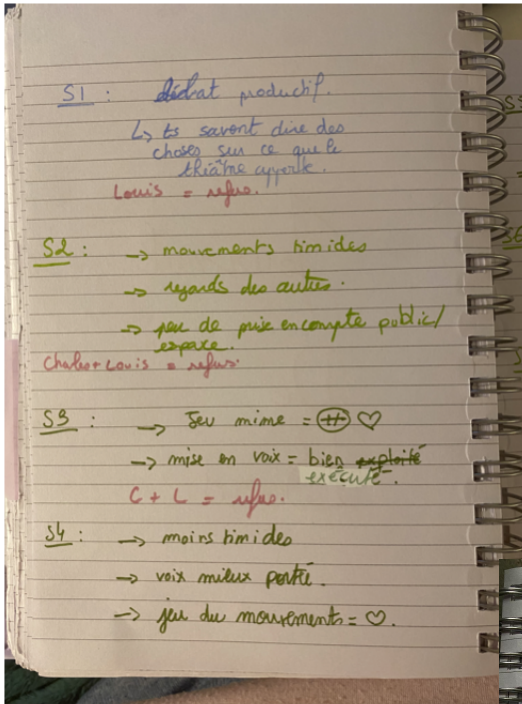 S1 : débat productif.
↳ ts savent dire des
choses sur ce que le
théâtre apporte.
Louis = refus.
S2 : → mouvements timides
→ regards des autres.
→ peu de prise en compte public/
espace.
Charles + Louis = refus.
S3 : → Jeu mime = ++ ♡
→ mise en voix = bien exploité
exécuté.
C + L = refus.
S4 : → moins timides
→ voix mieux porté.
→ jeu du mouvements = ♡.